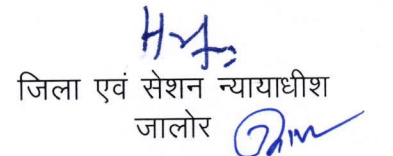 जिला एवं सेशन न्यायाधीश
जालोर